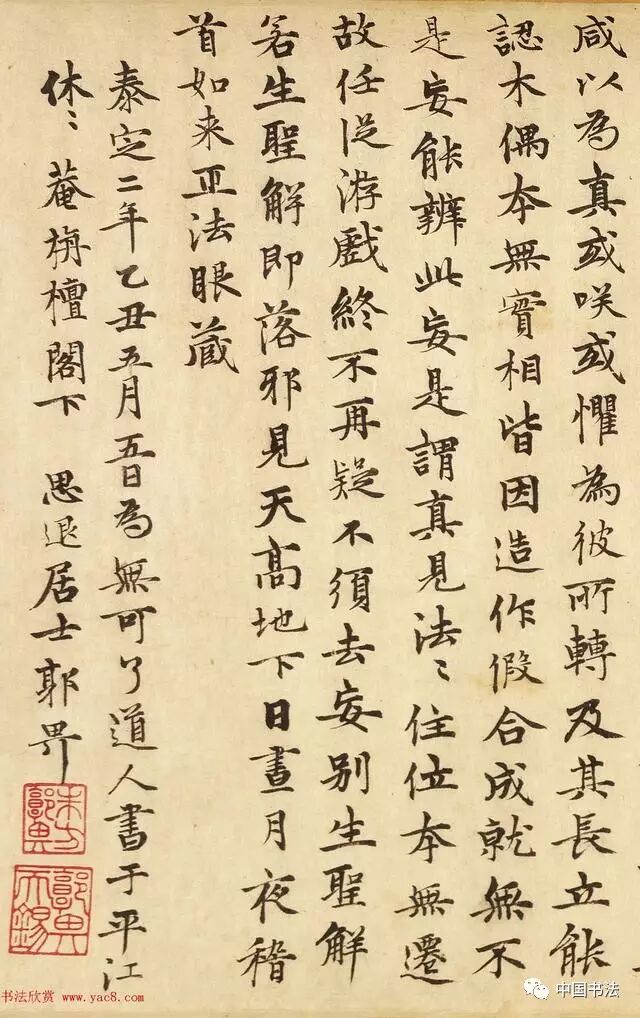 咸以為真或咲或懼為彼所轉及其長立能
認木偶本無實相皆因造作假合成就無不
是妄能辨此妄是謂真見法〻住位本無遷
故任從游戲終不再疑不須去妄別生聖解
若生聖解即落邪見天高地下日晝月夜稽
首如来正法眼蔵
泰定二年乙丑五月五日為無可了道人書于平江
休〻菴栴檀閣下 思退居士郭畀
郭畀
郭畀
天錫
书法欣赏 www.yac8.com
中国书法